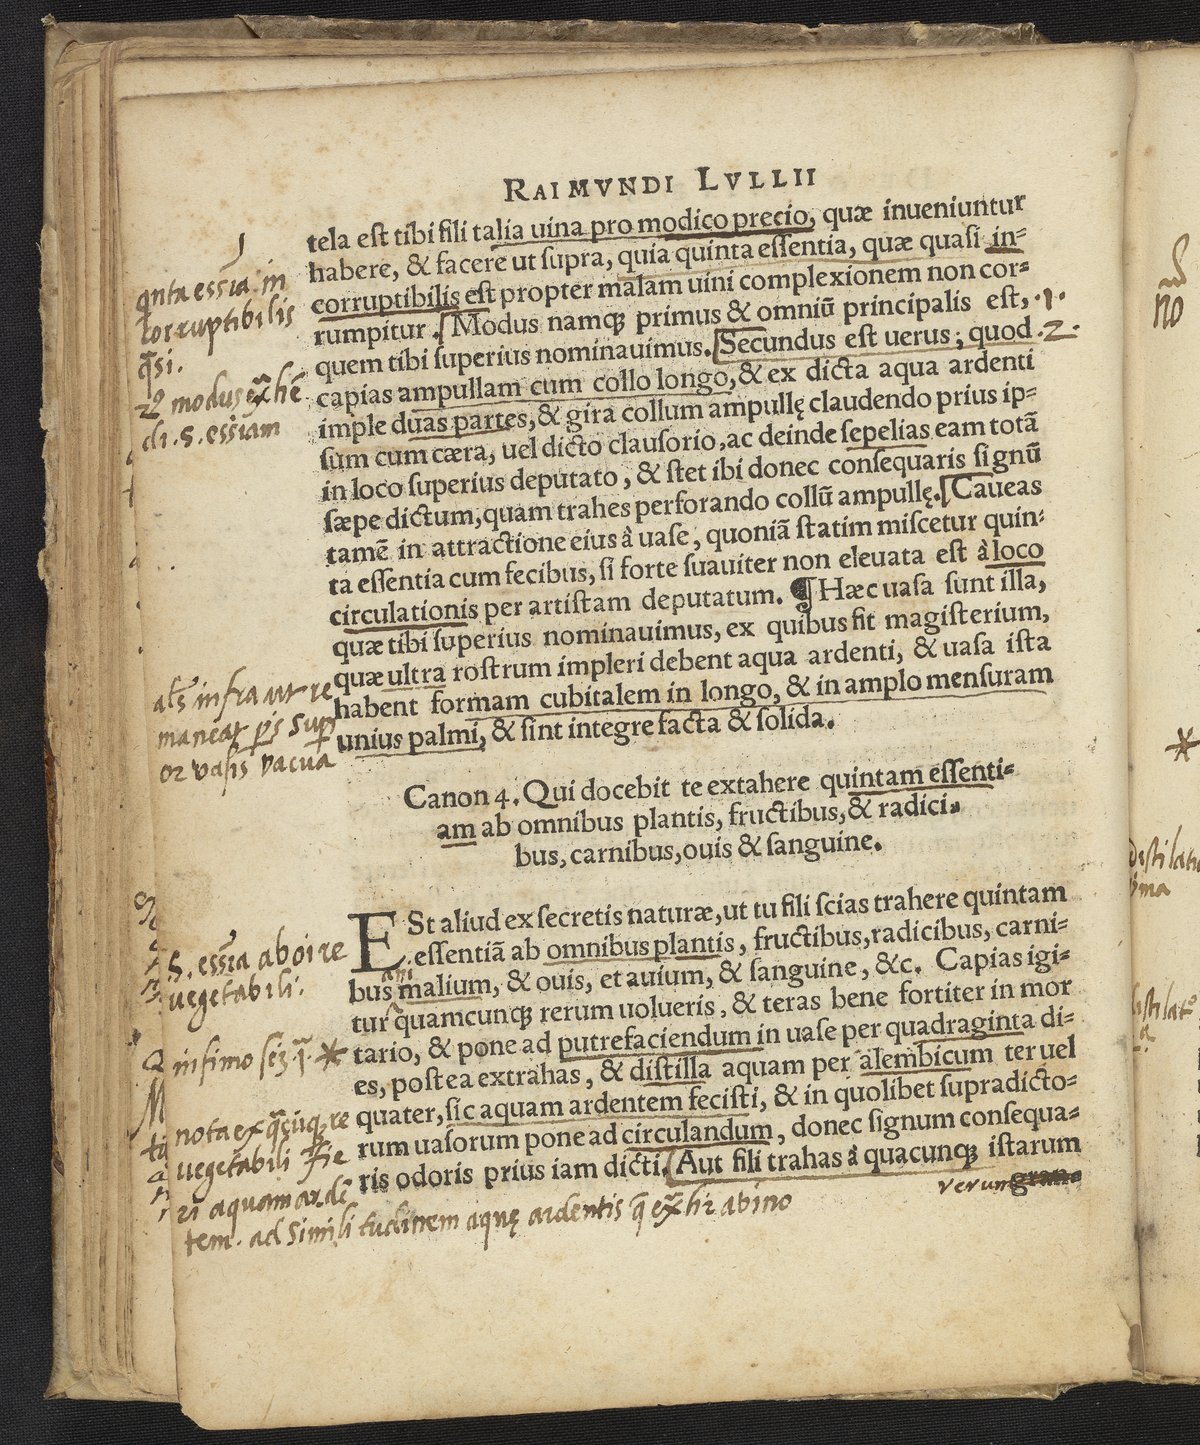 RAIMVNDI LVLLII
tela est tibi fili talia uina pro modico precio, quæ inueniuntur
habere, & facere ut supra, quia quinta essentia, quæ quasi in-
corruptibilis est propter malam uini complexionem non cor-
rumpitur. Modus namq; primus & omniũ principalis est, ·1·
quem tibi superius nominauimus. Secundus est uerus; quod ·2·
capias ampullam cum collo longo, & ex dicta aqua ardenti
imple duas partes, & gira collum ampullę claudendo prius ip-
sum cum cæra, uel dicto clausorio, ac deinde sepelias eam totã
in loco superius deputato, & stet ibi donec consequaris signũ
sæpe dictum, quam trahes perforando collũ ampullę. Caueas
tamẽ in attractione eius à uase, quoniã statim miscetur quin-
ta essentia cum fecibus, si forte suauiter non eleuata est à loco
circulationis per artistam deputatum. ¶ Hæc uasa sunt illa,
quæ tibi superius nominauimus, ex quibus fit magisterium,
quæ ultra rostrum impleri debent aqua ardenti, & uasa ista
habent formam cubitalem in longo, & in amplo mensuram
unius palmi, & sint integre facta & solida.
Canon 4. Qui docebit te extahere quintam essenti-
am ab omnibus plantis, fructibus, & radici-
bus, carnibus, ouis & sanguine.
ESt aliud ex secretis naturæ, ut tu fili scias trahere quintam
essentiã ab omnibus plantis, fructibus, radicibus, carni-
ani
bus malium, & ouis, et auium, & sanguine, &c. Capias igi-
tur quamcunq; rerum uolueris, & teras bene fortiter in mor
tario, & pone ad putrefaciendum in uase per quadraginta di-
es, postea extrahas, & distilla aquam per alembicum ter uel
quater, sic aquam ardentem fecisti, & in quolibet supradicto-
rum uasorum pone ad circulandum, donec signum consequa-
ris odoris prius iam dicti. Aut fili trahas à quacunq; istarum
rerum
qnta essẽia in
corruptibilis
q̃si.
modus
di. 5. essẽiam
infra ut re
maneat sup
or vasis vacua
5. essẽia ab oi re
vegetabili.
infimo *
nota ex re
vegetabili fie
ri aquam ardẽ
tem. ad similitudinem aquę ardentis a vino
no
*
distilatio